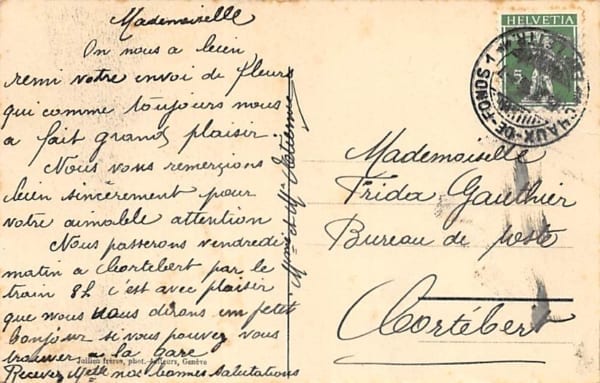 Mademoiselle
On nous a bien
remi votre envoi de fleurs
qui comme toujours nous
a fait grand plaisir.
Nous vous remerçions
bien sincèrement pour
votre aimable attention
Nous passerons vendredi
matin a Cortébert par le
train 8h c'est avec plaisir
que nous vous dirons un petit
bonjour si vous pouvez vous
trouver a la gare
Recevez Melle nos bonnes salutations
Mme et Mr
Jullien frères, phot.-éditeurs, Genève
HELVETIA
5
LA CHAUX-DE-FONDS 1
Mademoiselle
Frida Gauthier
Bureau de poste
Cortébert